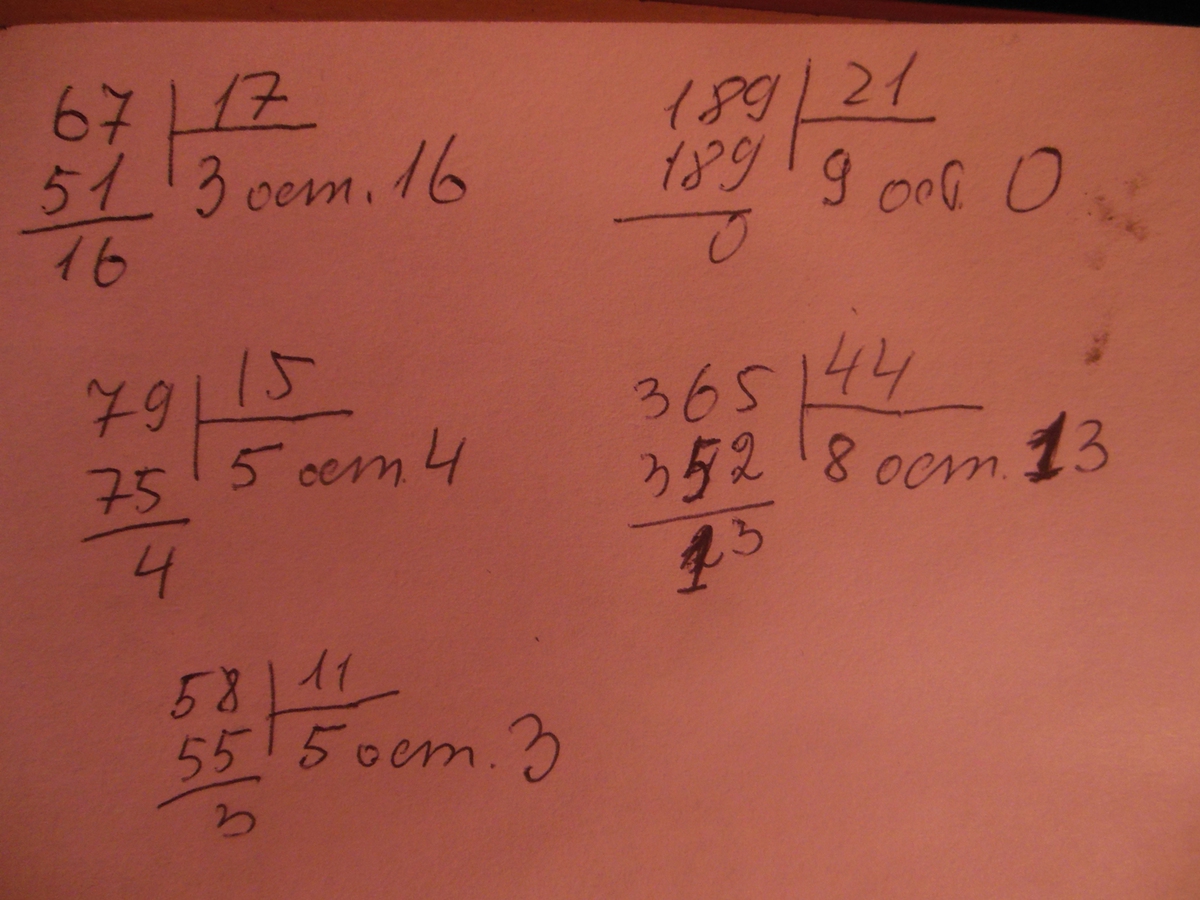 67 17
51 3 ост. 16
16
189 21
189 9 ост. 0
0
79 15
75 5 ост. 4
4
365 44
352 8 ост. 13
13
58 11
55 5 ост. 3
3